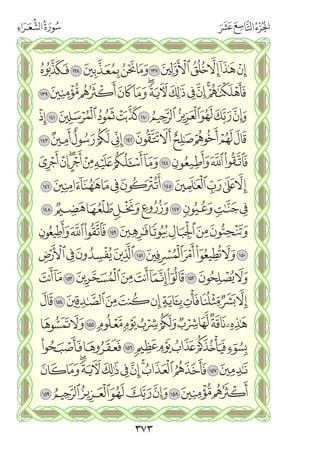 الجُزْءُ التَّاسِعَ عَشَرَ سُورَةُ الشُّعَرَاءِ
إِنْ هَٰذَا إِلَّا خُلُقُ الْأَوَّلِينَ ١٣٧ وَمَا نَحْنُ بِمُعَذَّبِينَ ١٣٨ فَكَذَّبُوهُ
فَأَهْلَكْنَاهُمْ إِنَّ فِي ذَٰلِكَ لَآيَةً وَمَا كَانَ أَكْثَرُهُم مُّؤْمِنِينَ ١٣٩
وَإِنَّ رَبَّكَ لَهُوَ الْعَزِيزُ الرَّحِيمُ ١٤٠ كَذَّبَتْ ثَمُودُ الْمُرْسَلِينَ ١٤١ إِذْ
قَالَ لَهُمْ أَخُوهُمْ صَالِحٌ أَلَا تَتَّقُونَ ١٤٢ إِنِّي لَكُمْ رَسُولٌ أَمِينٌ ١٤٣
فَاتَّقُوا اللَّهَ وَأَطِيعُونِ ١٤٤ وَمَا أَسْأَلُكُمْ عَلَيْهِ مِنْ أَجْرٍ إِنْ أَجْرِيَ
إِلَّا عَلَىٰ رَبِّ الْعَالَمِينَ ١٤٥ أَتُتْرَكُونَ فِي مَا هَاهُنَا آمِنِينَ ١٤٦
فِي جَنَّاتٍ وَعُيُونٍ ١٤٧ وَزُرُوعٍ وَنَخْلٍ طَلْعُهَا هَضِيمٌ ١٤٨
وَتَنْحِتُونَ مِنَ الْجِبَالِ بُيُوتًا فَارِهِينَ ١٤٩ فَاتَّقُوا اللَّهَ وَأَطِيعُونِ
١٥٠ وَلَا تُطِيعُوا أَمْرَ الْمُسْرِفِينَ ١٥١ الَّذِينَ يُفْسِدُونَ فِي الْأَرْضِ
وَلَا يُصْلِحُونَ ١٥٢ قَالُوا إِنَّمَا أَنتَ مِنَ الْمُسَحَّرِينَ ١٥٣ مَا أَنتَ
إِلَّا بَشَرٌ مِّثْلُنَا فَأْتِ بِآيَةٍ إِن كُنتَ مِنَ الصَّادِقِينَ ١٥٤ قَالَ
هَٰذِهِ نَاقَةٌ لَّهَا شِرْبٌ وَلَكُمْ شِرْبُ يَوْمٍ مَّعْلُومٍ ١٥٥ وَلَا تَمَسُّوهَا
بِسُوءٍ فَيَأْخُذَكُمْ عَذَابُ يَوْمٍ عَظِيمٍ ١٥٦ فَعَقَرُوهَا فَأَصْبَحُوا
نَادِمِينَ ١٥٧ فَأَخَذَهُمُ الْعَذَابُ إِنَّ فِي ذَٰلِكَ لَآيَةً وَمَا كَانَ
أَكْثَرُهُم مُّؤْمِنِينَ ١٥٨ وَإِنَّ رَبَّكَ لَهُوَ الْعَزِيزُ الرَّحِيمُ ١٥٩
٣٧٣